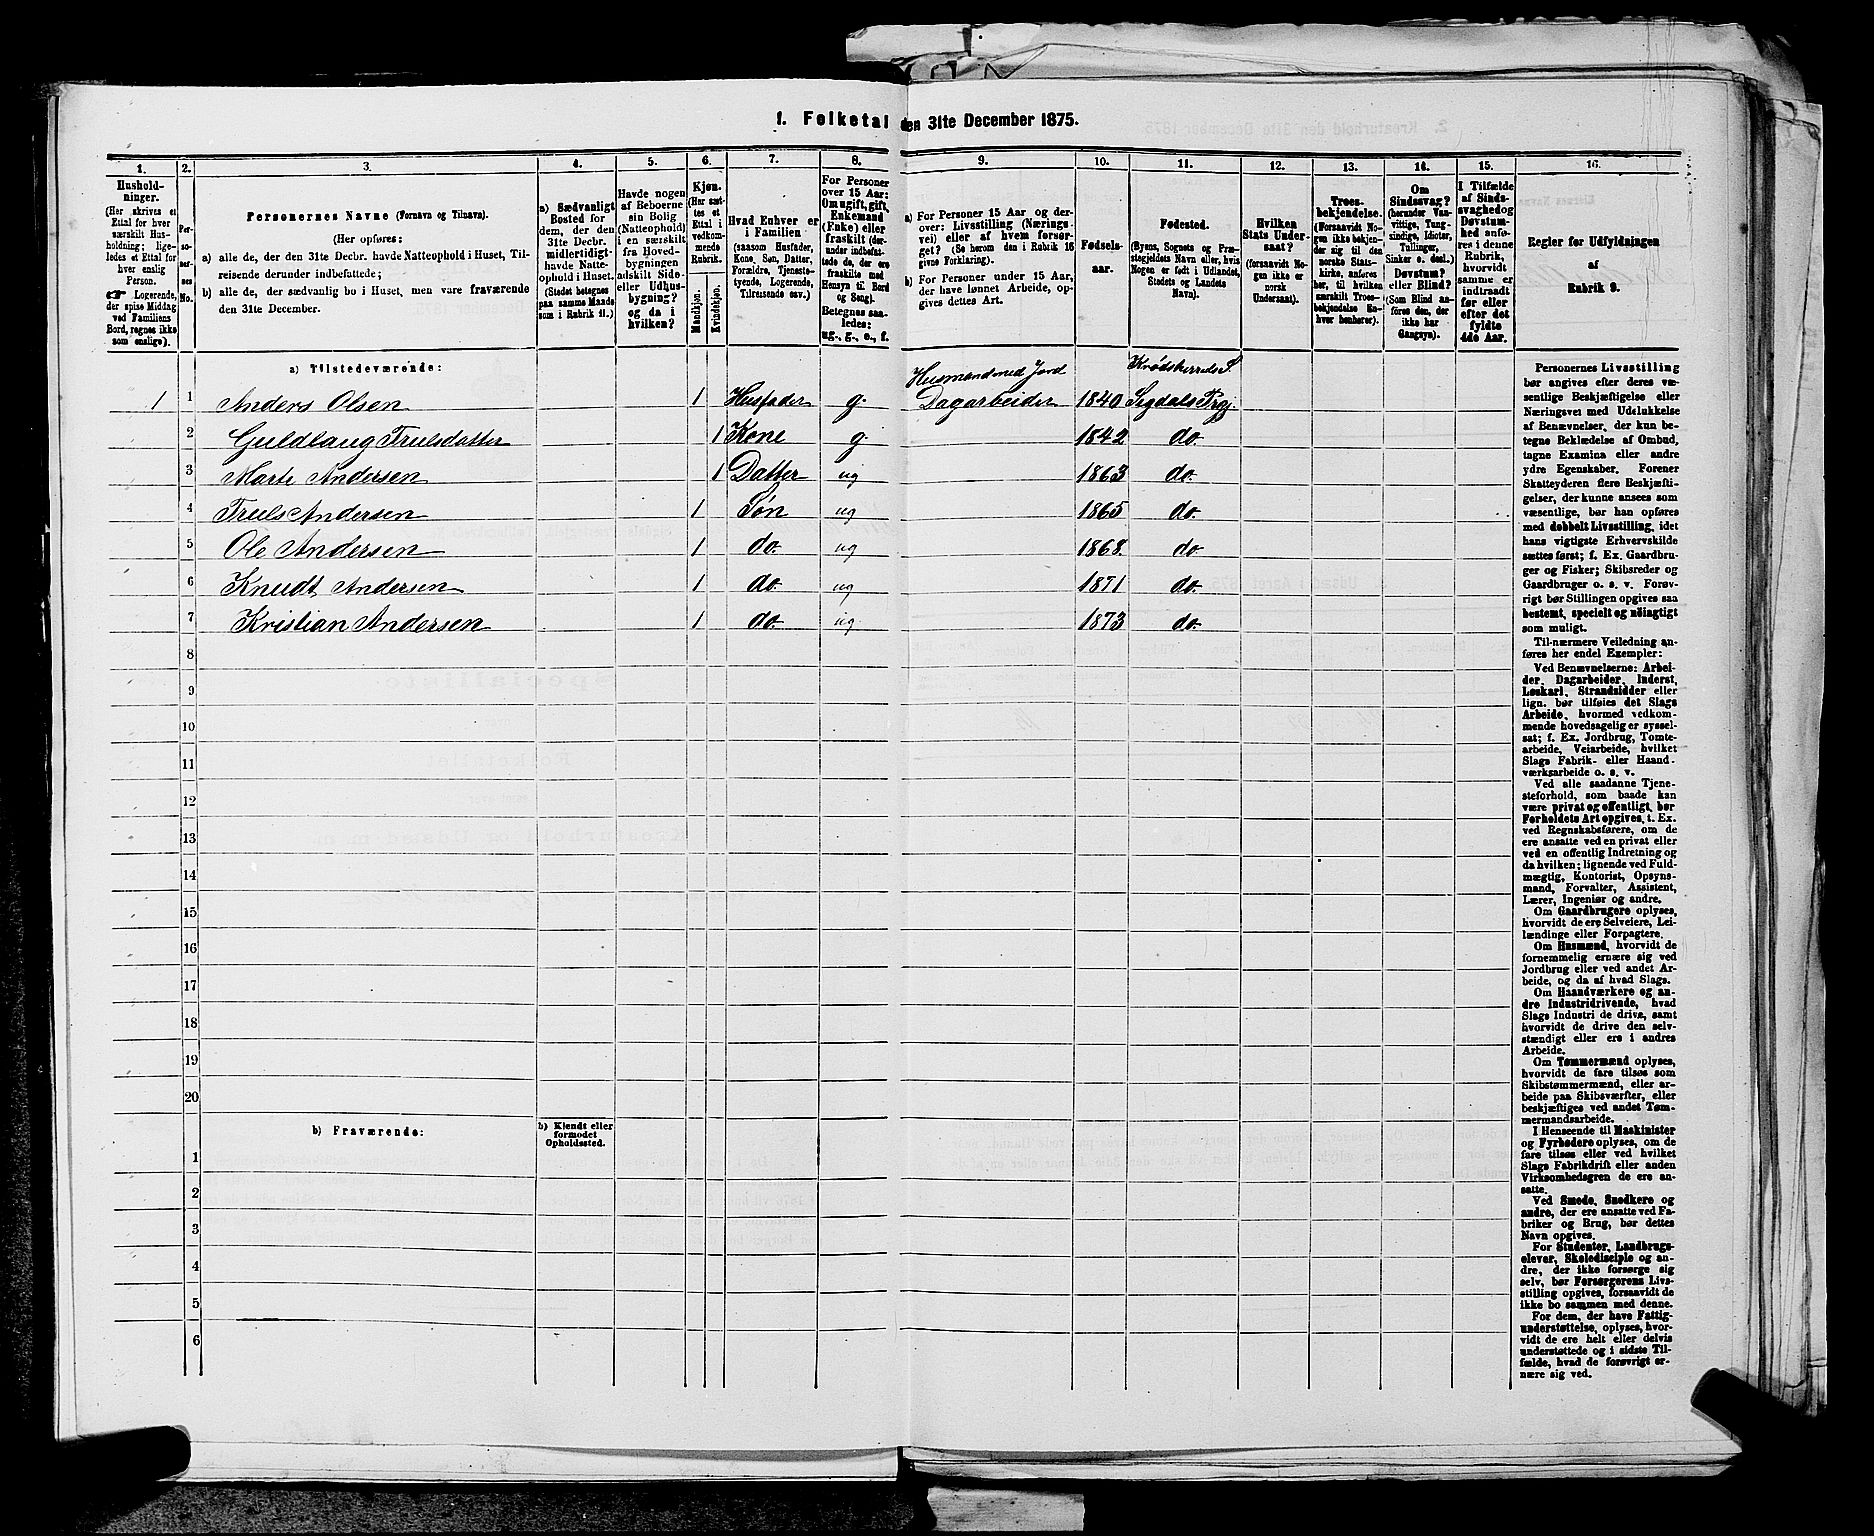 1. Folketal den 31te December 1875.
1. 2. 3. 4. 5. 6. 7. 8. 9. 10. 11. 12. 13. 14. 15. 16.
Hushold-
ninger.
(Her skrives et
Ettal for hver
særskilt Hus-
holdning; lige-
ledes et Ettal for
hver enslig
Person.
☞ Logerende,
der spise Middag
ved Familiens
Bord, regnes ikke
som enslige).
Per-
so-
ner-
nes
No.
Personernes Navne (Fornavn og Tilnavn).
(Her opføres:
a) alle de, der den 31te Decbr. havde Natteophold i Huset, Til-
reisende derunder indbefattede;
b) alle de, der sædvanlig bo i Huset, men vare fraværende
den 31te December.
a) Sædvanligt
Bosted for
dem, der den
31te Decbr.
midlertidigt
havde Natte-
ophold i Huset.
(Stedet betegnes
paa samme Maade
som i Rubrik 11.)
Havde nogen
af Beboerne
sin Bolig
(Natteophold)
i en særskilt
fra Hoved-
bygningen
adskilt Side-
eller Udhus-
bygning?
og da i
hvilken?
Kjøn.
(Her sæt-
tes et
Ettal i
vedkom-
mende
Rubrik.
Mandkjøn.
Kvindekjøn.
Hvad Enhver er
i Familien
(saasom Husfader,
Kone, Søn, Datter,
Forældre, Tjeneste-
tyende, Logerende,
Tilreisende osv.)
For Personer
over 15 Aar:
Om ugift, gift,
Enkemand
(Enke) eller
fraskilt (der-
under indbefat-
tede de, der ere
fraskilte med
Hensyn til Bord
og Seng).
Betegnes saa-
ledes:
ug., g., e., f.
a) For Personer 15 Aar og der-
over: Livsstilling (Nærings-
vei) eller af hvem forsør-
get? (Se herom den i Rubrik 16
givne Forklaring).
b) For Personer under 15 Aar,
der have lønnet Arbeide, op-
gives dettes Art.
Fødsels-
aar.
Fødested.
(Byens, Sognets og Præ-
stegjeldets Navn eller, hvis
Nogen er født i Udlandet,
Stedets og Landets
Navn).
Hvilken
Stats Under-
saat?
(forsaavidt No-
gen ikke er
norsk
Undersaat).
Troes-
bekjendelse.
(Forsaavidt No-
gen ikke bekjen-
der sig til den
norske Stats-
kirke, anføres
her, til hvilken
særskilt Troes-
bekjendelse En-
hver henhører).
Om
Sindssvag?
(herunder Van-
vittige, Tung-
sindige, Idioter,
Tullinger,
Sinker o. desl.)
Døvstum?
eller Blind?
(Som Blind an-
føres den, der
ikke har
Gangsyn).
I Tilfælde
af Sinds-
svaghed og
Døvstum-
hed anfø-
res i denne
Rubrik,
hvorvidt
samme er
indtraadt
før eller
efter det
fyldte
4de Aar.
Regler for Udfyldningen
af
Rubrik 9.
a) Tilstedeværende:
Husmand med Jord Krødsherreds S.
1 1 Anders Olsen 1 Husfader g. Dagarbeider 1840 Sigdals Prgj.
2 Guldlaug Trulsdatter 1 Kone g. 1842 do.
3 Marte Andersen 1 Datter ug 1863 do.
4 Truls Andersen 1 Søn ug 1865 do.
5 Ole Andersen 1 do. ug 1868 do
6 Knudt Andersen 1 do. ug 1871 do.
7 Kristian Andersen 1 do. ug. 1873 do.
8
9
10
11
12
13
14
15
16
17
18
19
20
b) Fraværende:
b) Kjendt eller
formodet
Opholdssted.
1
2
3
4
5
6
Personernes Livsstilling
bør angives efter deres væ-
sentlige Beskjæftigelse eller
Næringsvei med Udelukkelse
af Benævnelser, der kun be-
tegne Beklædelse af Ombud,
tagne Examina eller andre
ydre Egenskaber. Forener
Skatteyderen flere Beskjæfti-
gelser, der kunne ansees som
væsentlige, bør han opføres
med dobbelt Livsstilling, idet
hans vigtigste Erhvervskilde
sættes først; f. Ex. Gaardbru-
ger og Fisker; Skibsreder og
Gaardbruger o. s. v. Forøv-
rigt bør Stillingen opgives saa
bestemt, specielt og nöiagtigt
som muligt.
Til nærmere Veiledning an-
føres her endel Exempler:
Ved Benævnelserne: Arbei-
der, Dagarbeider, Inderst,
Løskarl, Strandsidder eller
lign. bør tilføies det Slags
Arbeide, hvormed vedkom-
mende hovedsagelig er syssel-
sat; f. Ex. Jordbrug, Tomte-
arbeide, Veiarbeide, hvilket
Slags Fabrik- eller Haand-
værksarbeide o. s. v.
Ved alle saadanne Tjene-
steforhold, som baade kan
være privat og offentligt, bør
Forholdets Art opgives, t. Ex.
ved Regnskabsførere, om de
ere ansatte ved en privat eller
ved en offentlig Indretning og
da hvilken; lignende ved Fuld-
mægtig, Kontorist, Opsyns-
mand, Forvalter, Assistent,
Lærer, Ingeniør og andre.
Om Gaardbrugere oplyses,
hvorvidt de ere Selveiere, Lei-
lændinge eller Forpagtere.
Om Husmænd, hvorvidt de
fornemmelig ernære sig ved
Jordbrug eller ved andet Ar-
beide, og da af hvad Slags.
Om Haandværkere og an-
dre Industridrivende, hvad
Slags Industri de drive, samt
hvorvidt de drive den selv-
stændigt eller ere i andres
Arbeide.
Om Tømmermænd oplyses,
hvorvidt de fare tilsøs som
Skibstømmermænd, eller ar-
beide paa Skibsværfter, eller
beskjæftiges ved andet Tøm-
mermandsarbeide.
I Henseende til Maskinister
og Fyrbødere oplyses, om de
fare tilsøs eller ved hvilket
Slags Fabrikdrift eller anden
Virksomhedsgren de ere an-
satte.
Ved Smede, Snedkere og
andre, der ere ansatte ved Fa-
briker og Brug, bør dettes
Navn opgives.
For Studenter, Landbrugs-
elever, Skoledisciple og an-
dre, der ikke forsørge sig
selv, bør Forsørgerens Livs-
stilling opgives, forsaavidt de
ikke bo sammen med denne.
For dem, der have Fattig-
understøttelse, oplyses, hvor-
vidt de ere helt eller delvis
understøttede og i sidste Til-
fælde, hvad de forøvrigt er-
nære sig ved.